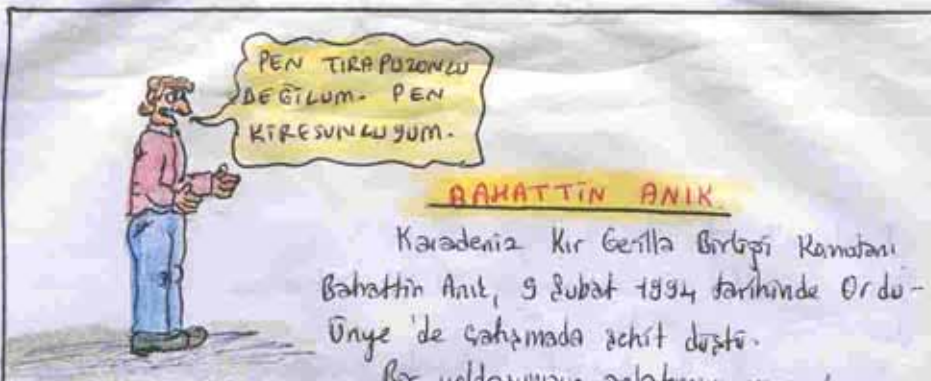 PEN TIRAPUZONLU
DEĞİLUM. PEN
KİRESUNLUYUM.
BAHATTİN ANIK
Karadeniz Kır Gerilla Birliği Komutanı
Bahattin Anık, 9 Şubat 1994 tarihinde Ordu-
Ünye'de çatışmada şehit düştü.
Bir yoldaşımızın